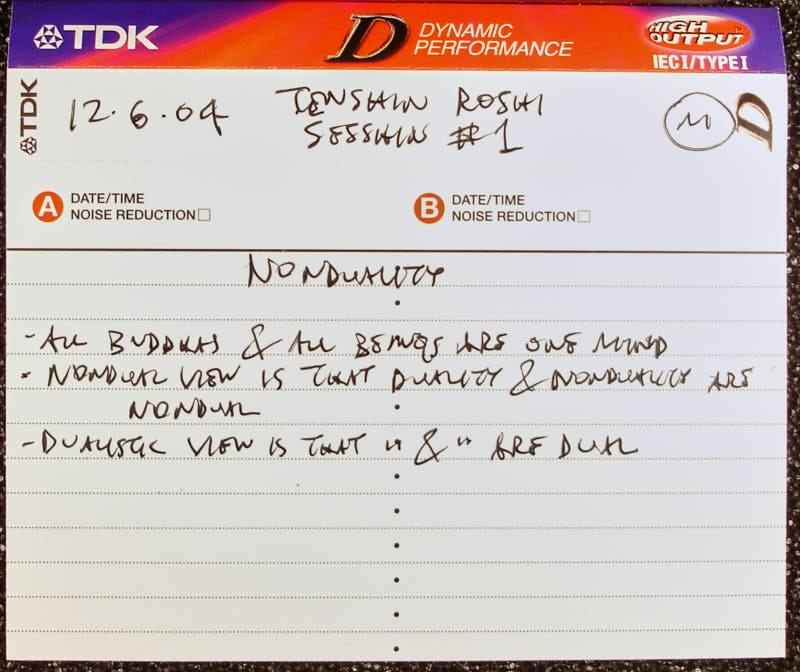 TDK D DYNAMIC PERFORMANCE HIGH OUTPUT IEC I/TYPE I
TDK 12.6.04 TENSHIN ROSHI D
SESSHIN #1
A DATE/TIME NOISE REDUCTION B DATE/TIME NOISE REDUCTION
NONDUALITY
- ALL BUDDHAS & ALL BEINGS ARE ONE MIND
- NONDUAL VIEW IS THAT DUALITY & NONDUALITY ARE
NONDUAL
- DUALISTIC VIEW IS THAT " & " ARE DUAL